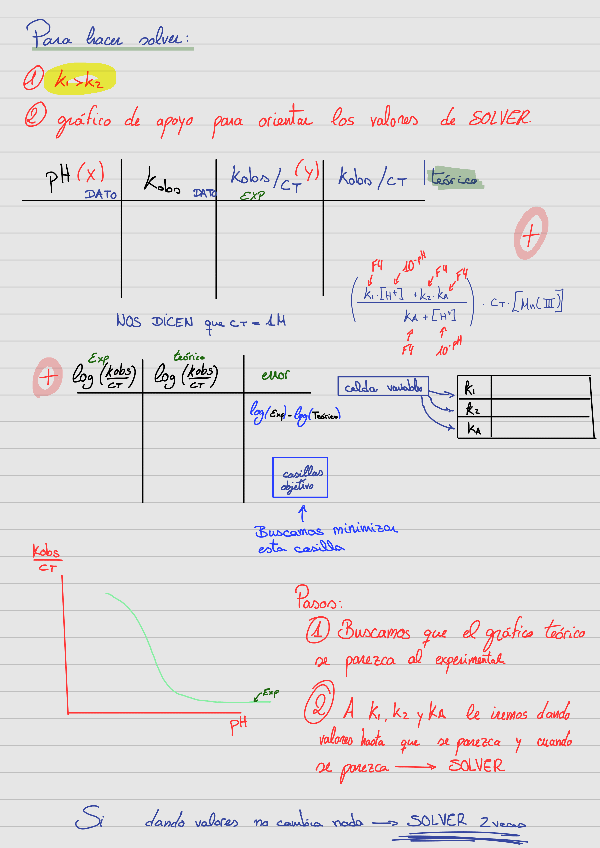 Para hacer solver:
① k₁>k₂
② gráfico de apoyo para orientar los valores de SOLVER.
pH (X) DATO
Kobs DATO
Kobs/CT (Y) EXP
Kobs/CT
teórico
+
F4 10^-pH F4 F4
(k₁·[H⁺] + k₂·KA / KA + [H⁺]) · CT · [Mn(III)]
F4 10^-pH
NOS DICEN que CT = 1M
+
Exp log(kobs/CT)
teórico log(kobs/CT)
error
log(Exp)-log(Teórico)
celda variables
k₁
k₂
KA
casillas
objetivo
Buscamos minimizar
esta casilla
Kobs/CT
Exp
pH
Pasos:
① Buscamos que el gráfico teórico
se parezca al experimental
② A k₁, k₂ y KA le iremos dando
valores hasta que se parezca y cuando
se parezca → SOLVER
Si dando valores no cambia nada → SOLVER 2 veces